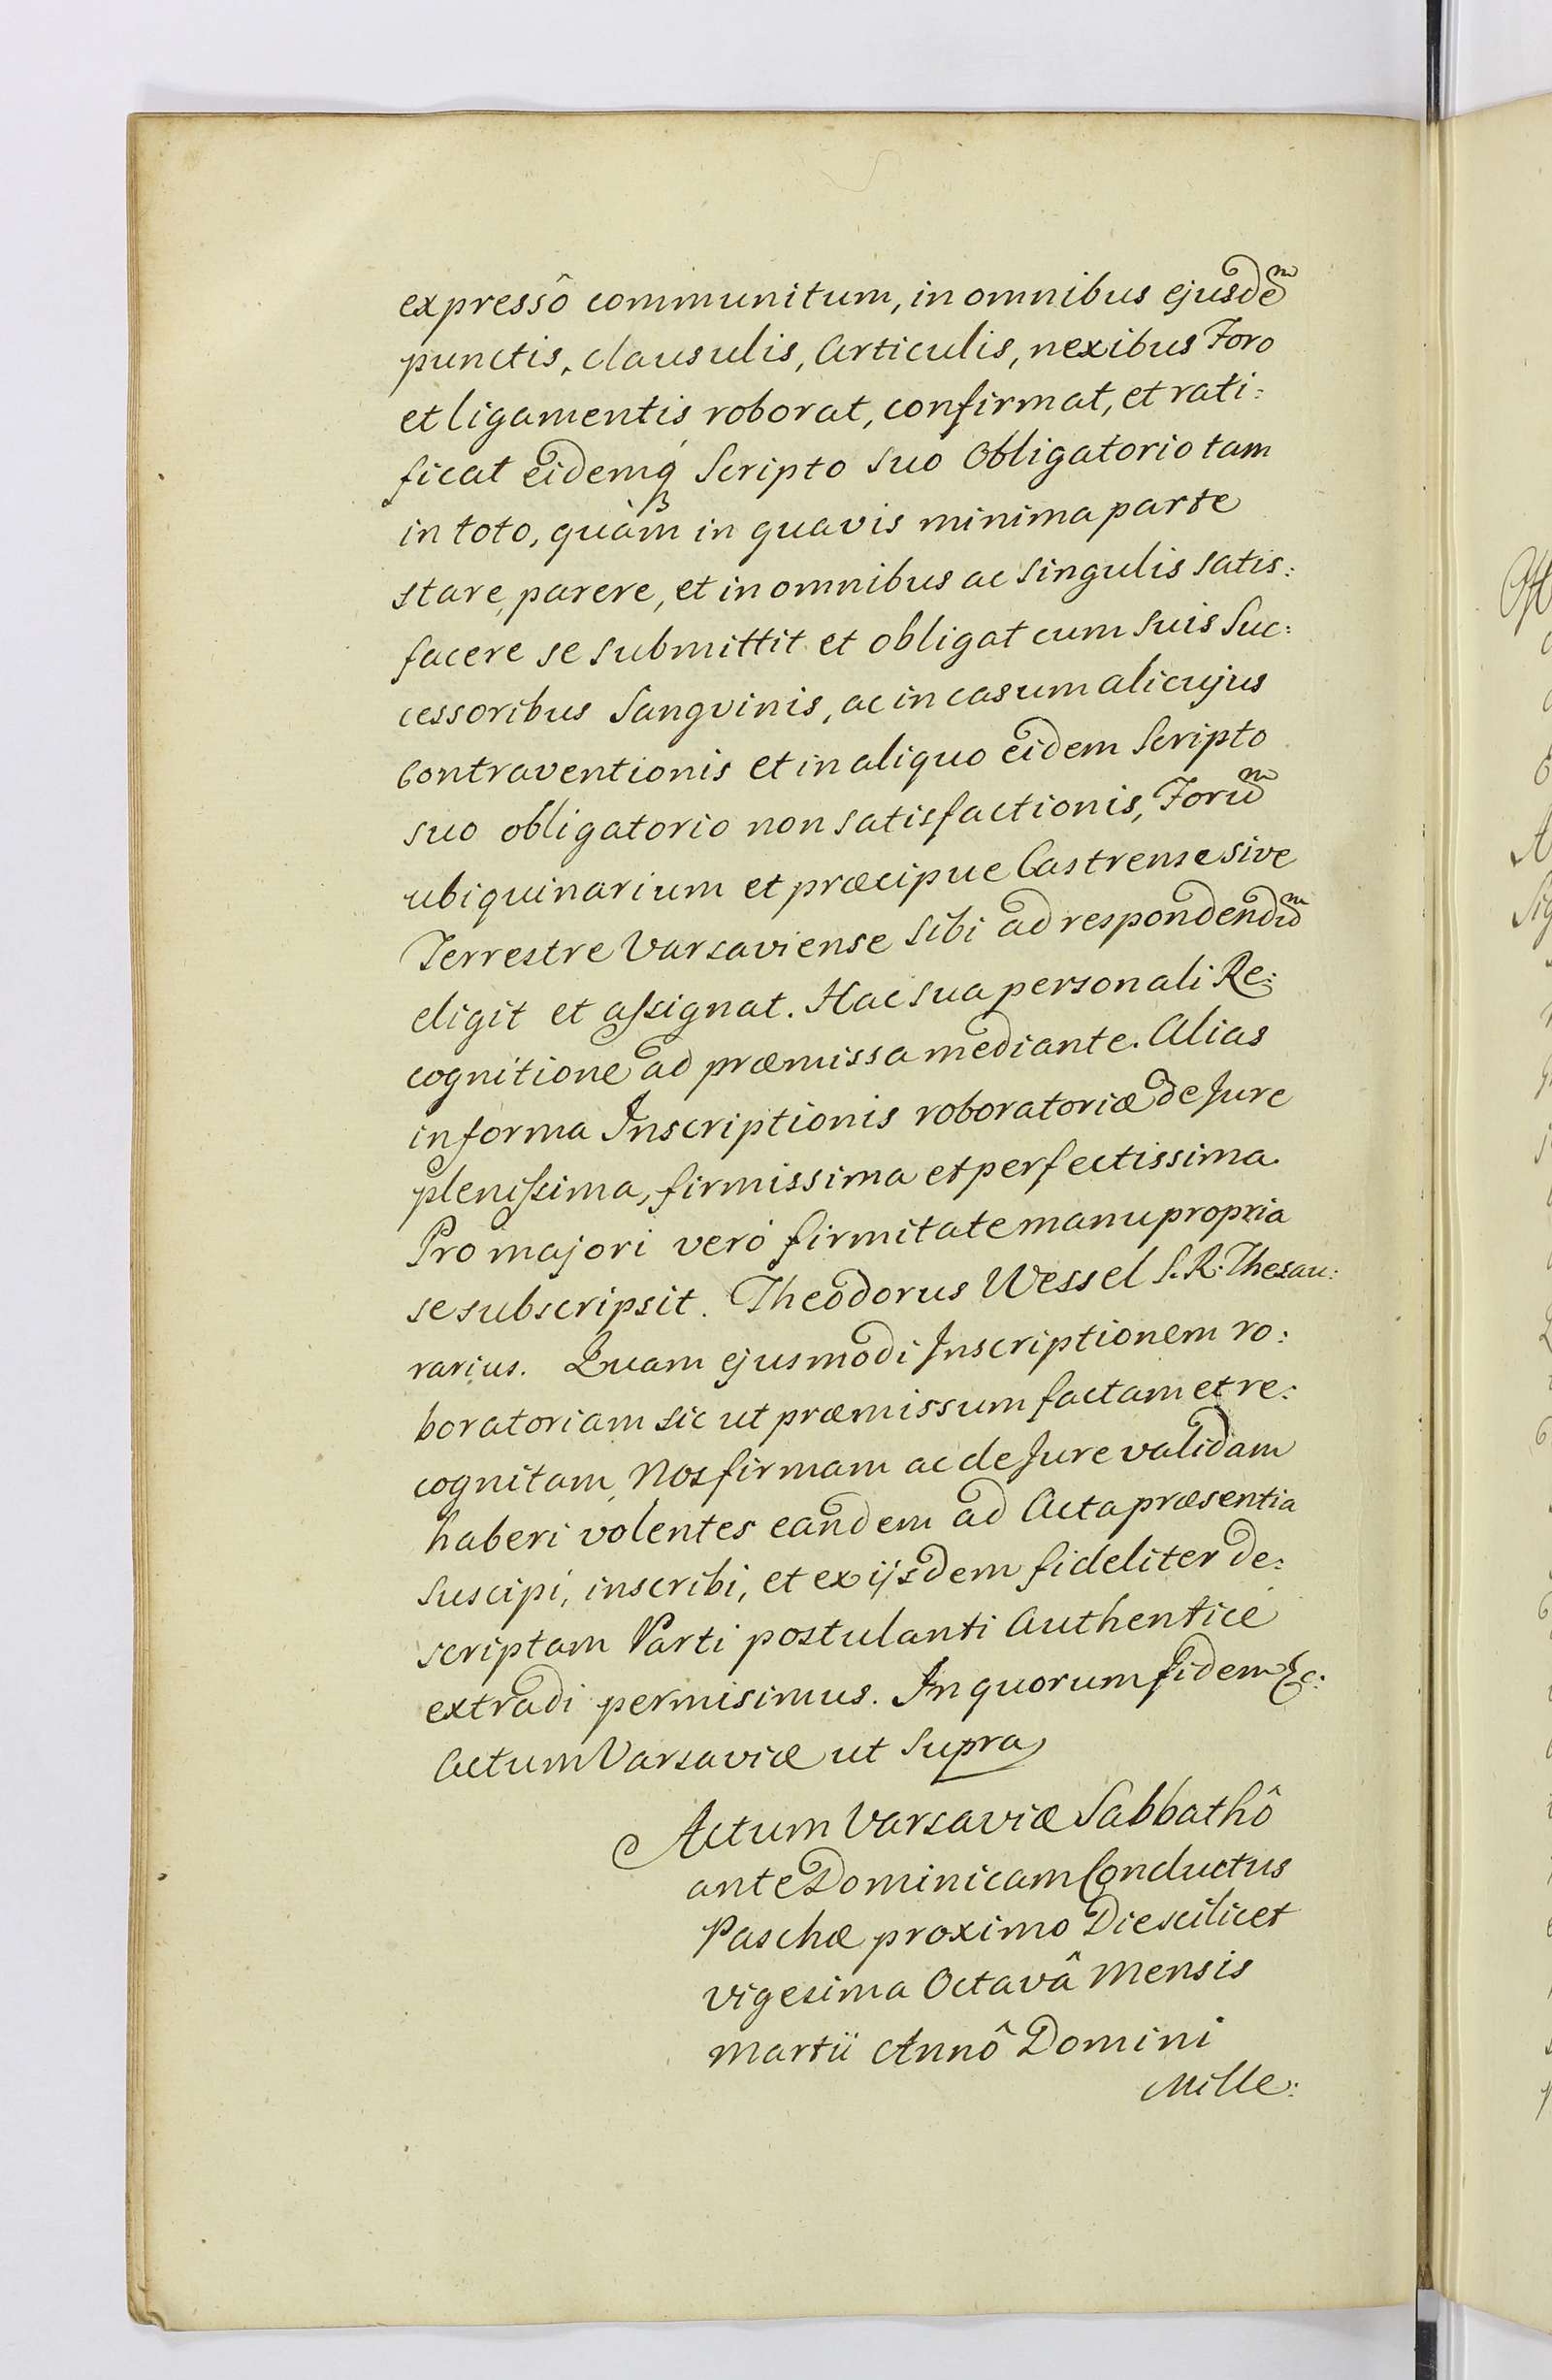 expressô communitum, in omnibus ejusdēm
punctis, clausulis, Articulis, nexibus Foro
et ligamentis roborat, confirmat, et rati:
ficat eidemq́ Scripto suo Obligatorio tam
in toto, quàm in quavis minima parte
stare, parere, et in omnibus ac singulis satis:
facere se submittit et obligat cum suis Suc:
cessoribus Sangvinis, ac in casum alicujus
Contraventionis et in aliquo eidem Scripto
suo obligatorio non satisfactionis, Forum
ubiquinarium et præcipue Castrense sive
Terrestre Varsaviense sibi ad respondendum
eligit et assignat. Hac sua personali Re:
cognitione ad præmissa mediante. Alias
in forma Inscriptionis roboratoriæ de Jure
plenissima, firmissima et perfectissima.
Pro majori veró firmitate manu propria
se subscripsit. Theodorus Wessel S. R: Thesau:
rarius. Quam ejusmodi Inscriptionem ro:
boratoriam sic ut præmissum factam et re:
cognitam, Nos firmam ac de Jure validam
haberi volentes eandem ad Acta præsentia
suscipi, inscribi, et ex ijsdem fideliter de:
scriptam Parti postulanti Authenticé
extradi permisimus. In quorum fidem &c:
Actum Varsaviæ ut supra
Actum Varsaviæ Sabbathô
ante Dominicam Conductus
Paschæ proximo Die scilicet
vigesima Octavâ Mensis
Martii Annô Domini
Mille: